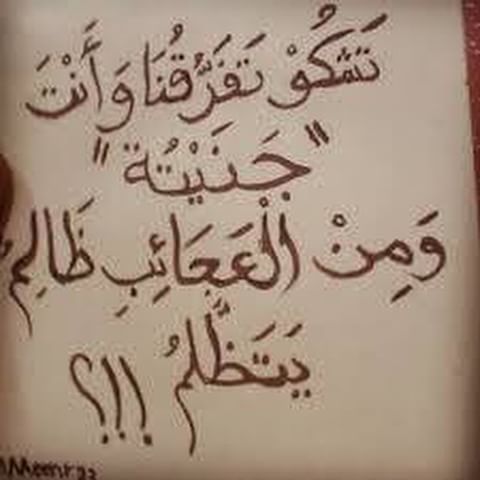 تَشْكُوْ تَفَرُّقَنَا وَأَنْتَ
"جَنَيْتُهُ"
وَمِنْ الْعَجَائِبِ ظَالِمٌ
يَتَظَلَّمُ !!؟